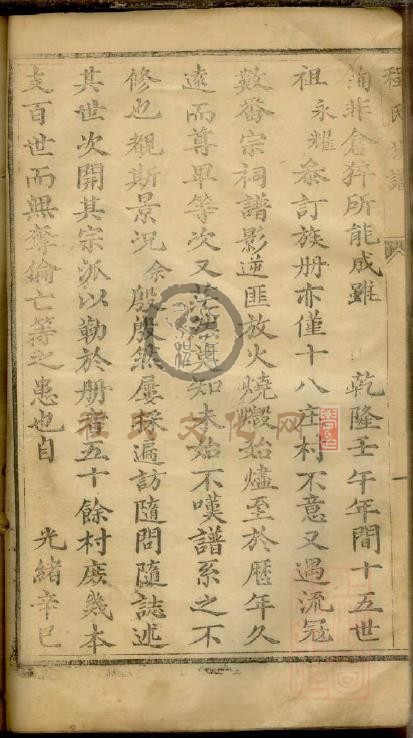 程氏
詢非倉猝所能成雖 乾隆壬午年間十五世
祖永耀叅訂族册亦僅十八庄村不意又遇流冦
數畨宗祠譜影逆匪放火燒燬始燼至於歷年久
遠而尊卑等次又莫知未始不嘆譜系之不
修也觀斯景况余殷殷然屢採遍訪隨問隨誌述
其世次開其宗派以勒於册者五十餘村庻幾本
支百世而無奪倫亡等之患也自 光緒辛巳
程氏文化网